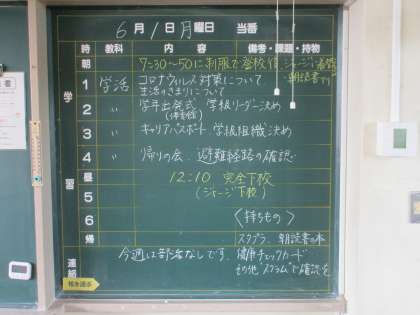 6月1日月曜日 当番
時 教科 内容 備考・課題・持物
朝 7:30〜50に制服で登校後、ジャージに着替
朝読書です
1 学活 コロナウィルス対策について
生活のきまりについて
2 〃 学年出発式 学級リーダー決め
(体育館)
3 〃 キャリアパスポート 学級組織決め
4 〃 帰りの会、避難経路の確認
昼 12:10 完全下校
(ジャージ下校)
5
6 〈持ちもの〉
帰 スクブラ、朝読書の本
連絡 今週は部活なしです。健康チェックカード
その他"スクラム"で確認を
学習